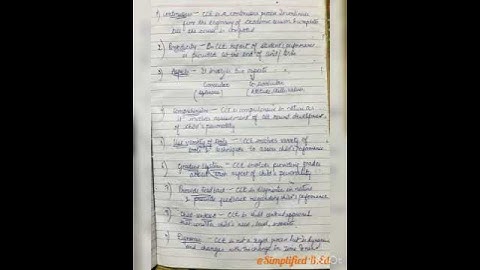 1) Continuous - CCE is a continuous process it continues
from the beginning of academic session & complete
till the session is completed
2) Periodicity - In CCE report of student's performance
is provided at the end of unit / term
3) Aspects - It involves two aspects
Curricular Co-curricular
(Syllabus) (Attitude, skills, values)
4) Comprehensive - CCE is comprehensive in nature as
it involves assessment of all round development
of child's personality
5) Use variety of tools - CCE involves variety of
tools & techniques to assess child's performance
6) Grading System - CCE involves providing grades
report of child's personality
7) Provide feedback - CCE is diagnostic in nature
& provides feedback regarding child's performance
8) Child centred - CCE is child centred approach
child's need, level, interests
9) Dynamic - CCE is not a rigid process but is dynamic
and changes with the change in time & need
@Simplified B.Ed